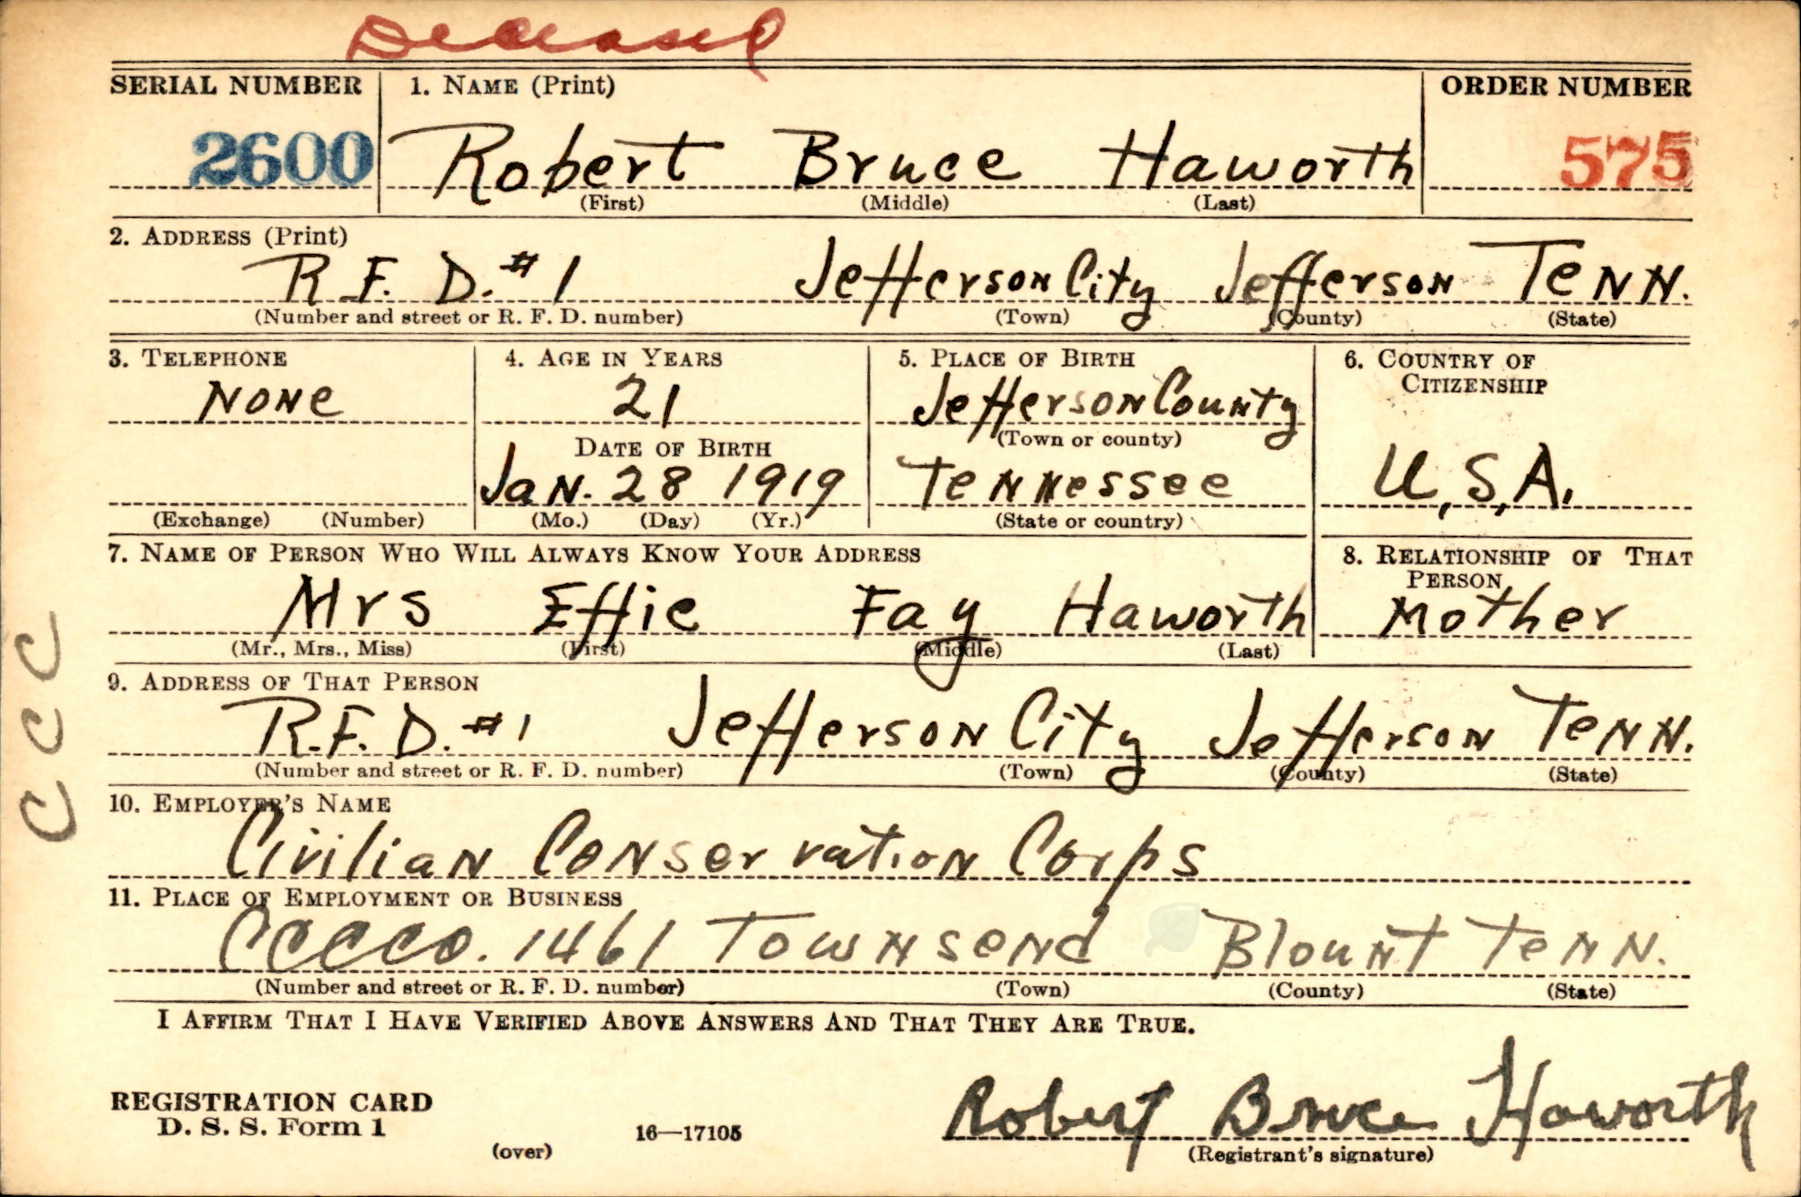 Deceased
SERIAL NUMBER 1. NAME (Print) ORDER NUMBER
2600 Robert Bruce Haworth 575
(First) (Middle) (Last)
2. ADDRESS (Print)
R.F. D. #1 Jefferson City Jefferson Tenn.
(Number and street or R. F. D. number) (Town) (County) (State)
3. TELEPHONE 4. AGE IN YEARS 5. PLACE OF BIRTH 6. COUNTRY OF
CITIZENSHIP
None 21 Jefferson County
DATE OF BIRTH (Town or county)
Jan. 28 1919 Tennessee U.S.A.
(Exchange) (Number) (Mo.) (Day) (Yr.) (State or country)
7. NAME OF PERSON WHO WILL ALWAYS KNOW YOUR ADDRESS 8. RELATIONSHIP OF THAT
PERSON
Mrs Effie Fay Haworth Mother
(Mr., Mrs., Miss) (First) (Middle) (Last)
CCC
9. ADDRESS OF THAT PERSON
R.F. D. #1 Jefferson City Jefferson Tenn.
(Number and street or R. F. D. number) (Town) (County) (State)
10. EMPLOYER'S NAME
Civilian Conservation Corps
11. PLACE OF EMPLOYMENT OR BUSINESS
CCC CO. 1461 Townsend Blount Tenn.
(Number and street or R. F. D. number) (Town) (County) (State)
I AFFIRM THAT I HAVE VERIFIED ABOVE ANSWERS AND THAT THEY ARE TRUE.
REGISTRATION CARD
D. S. S. Form 1
(over) 16—17105
Robert Bruce Haworth
(Registrant's signature)